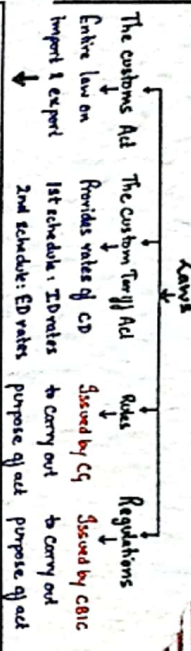 Laws
The customs Act
Entire law on
import & export
The Custom Tariff Act
Provides rates of CD
1st schedule: ID rates
2nd schedule: ED rates
Rules
Issued by CG
to carry out
purpose of act
Regulations
Issued by CBIC
to carry out
purpose of act